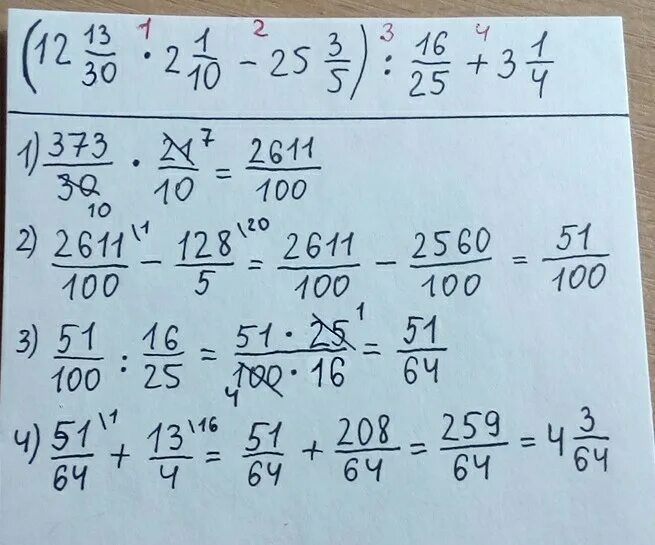 (12 13/30 · 2 1/10 − 25 3/5) : 16/25 + 3 1/4
1 2 3 4
1) 373/30 · 21/10 = 2611/100
10 7
2) 2611/100 \1 − 128/5 \20 = 2611/100 − 2560/100 = 51/100
3) 51/100 : 16/25 = 51 · 25/100 · 16 = 51/64
1 4
4) 51/64 \1 + 13/4 \16 = 51/64 + 208/64 = 259/64 = 4 3/64